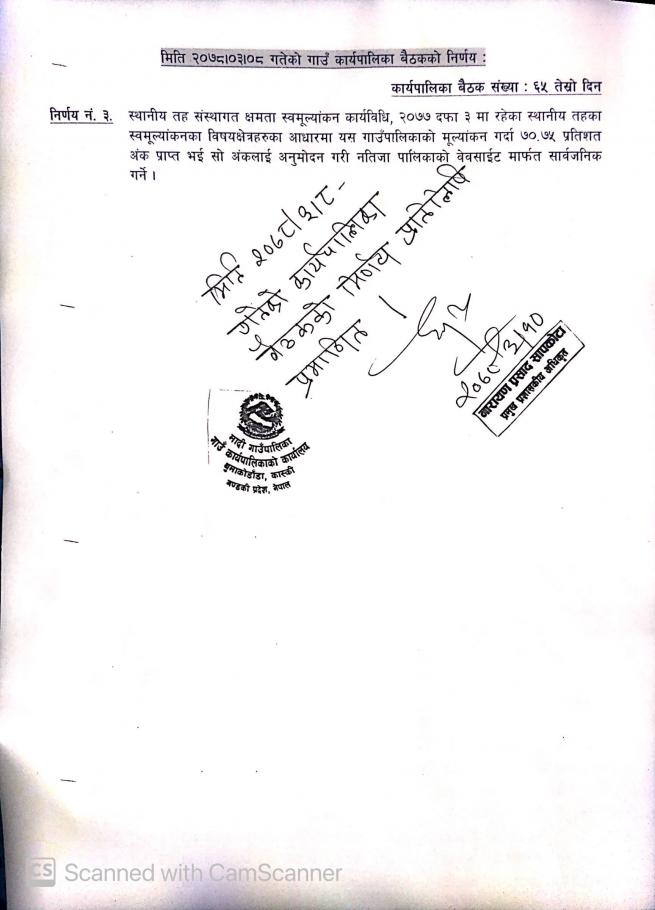 मिति २०७८।०३।०८ गतेको गाउँ कार्यपालिका बैठकको निर्णय :
कार्यपालिका बैठक संख्या : ६५ तेस्रो दिन
निर्णय नं. ३. स्थानीय तह संस्थागत क्षमता स्वमूल्यांकन कार्यविधि, २०७७ दफा ३ मा रहेका स्थानीय तहका
स्वमूल्यांकनका विषयक्षेत्रहरुका आधारमा यस गाउँपालिकाको मूल्यांकन गर्दा ७०.७५ प्रतिशत
अंक प्राप्त भई सो अंकलाई अनुमोदन गरी नतिजा पालिकाको वेवसाईट मार्फत सार्वजनिक
गर्ने ।
मिति २०७८/३/८
गतेको कार्यपालिका
बैठकको निर्णय प्रतिलिपि
प्रमाणित ।
२०७८/३/१०
नारायण प्रसाद सापकोटा
प्रमुख प्रशासकीय अधिकृत
मादी गाउँपालिका
गाउँ कार्यपालिकाको कार्यालय
थुमाकोडाँडा, कास्की
गण्डकी प्रदेश, नेपाल
CS Scanned with CamScanner